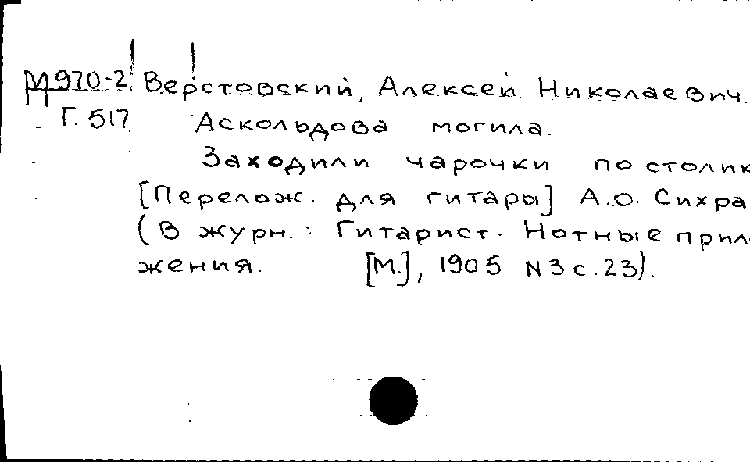 М970-2 Верстовский, Алексей Николаевич.
Г.517 Аскольдова могила.
Заходили чарочки по столик
[Перелож. для гитары] А.О. Сихра
(В журн.: Гитарист. Нотные прил
жения. [М.], 1905 N3 с.23).